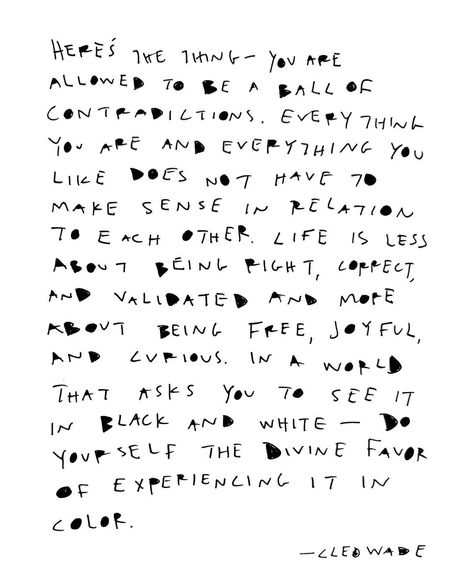 HERE'S THE THING— YOU ARE
ALLOWED TO BE A BALL OF
CONTRADICTIONS. EVERYTHING
YOU ARE AND EVERYTHING YOU
LIKE DOES NOT HAVE TO
MAKE SENSE IN RELATION
TO EACH OTHER. LIFE IS LESS
ABOUT BEING RIGHT, CORRECT,
AND VALIDATED AND MORE
ABOUT BEING FREE, JOYFUL,
AND CURIOUS. IN A WORLD
THAT ASKS YOU TO SEE IT
IN BLACK AND WHITE — DO
YOURSELF THE DIVINE FAVOR
OF EXPERIENCING IT IN
COLOR.
—CLEO WADE